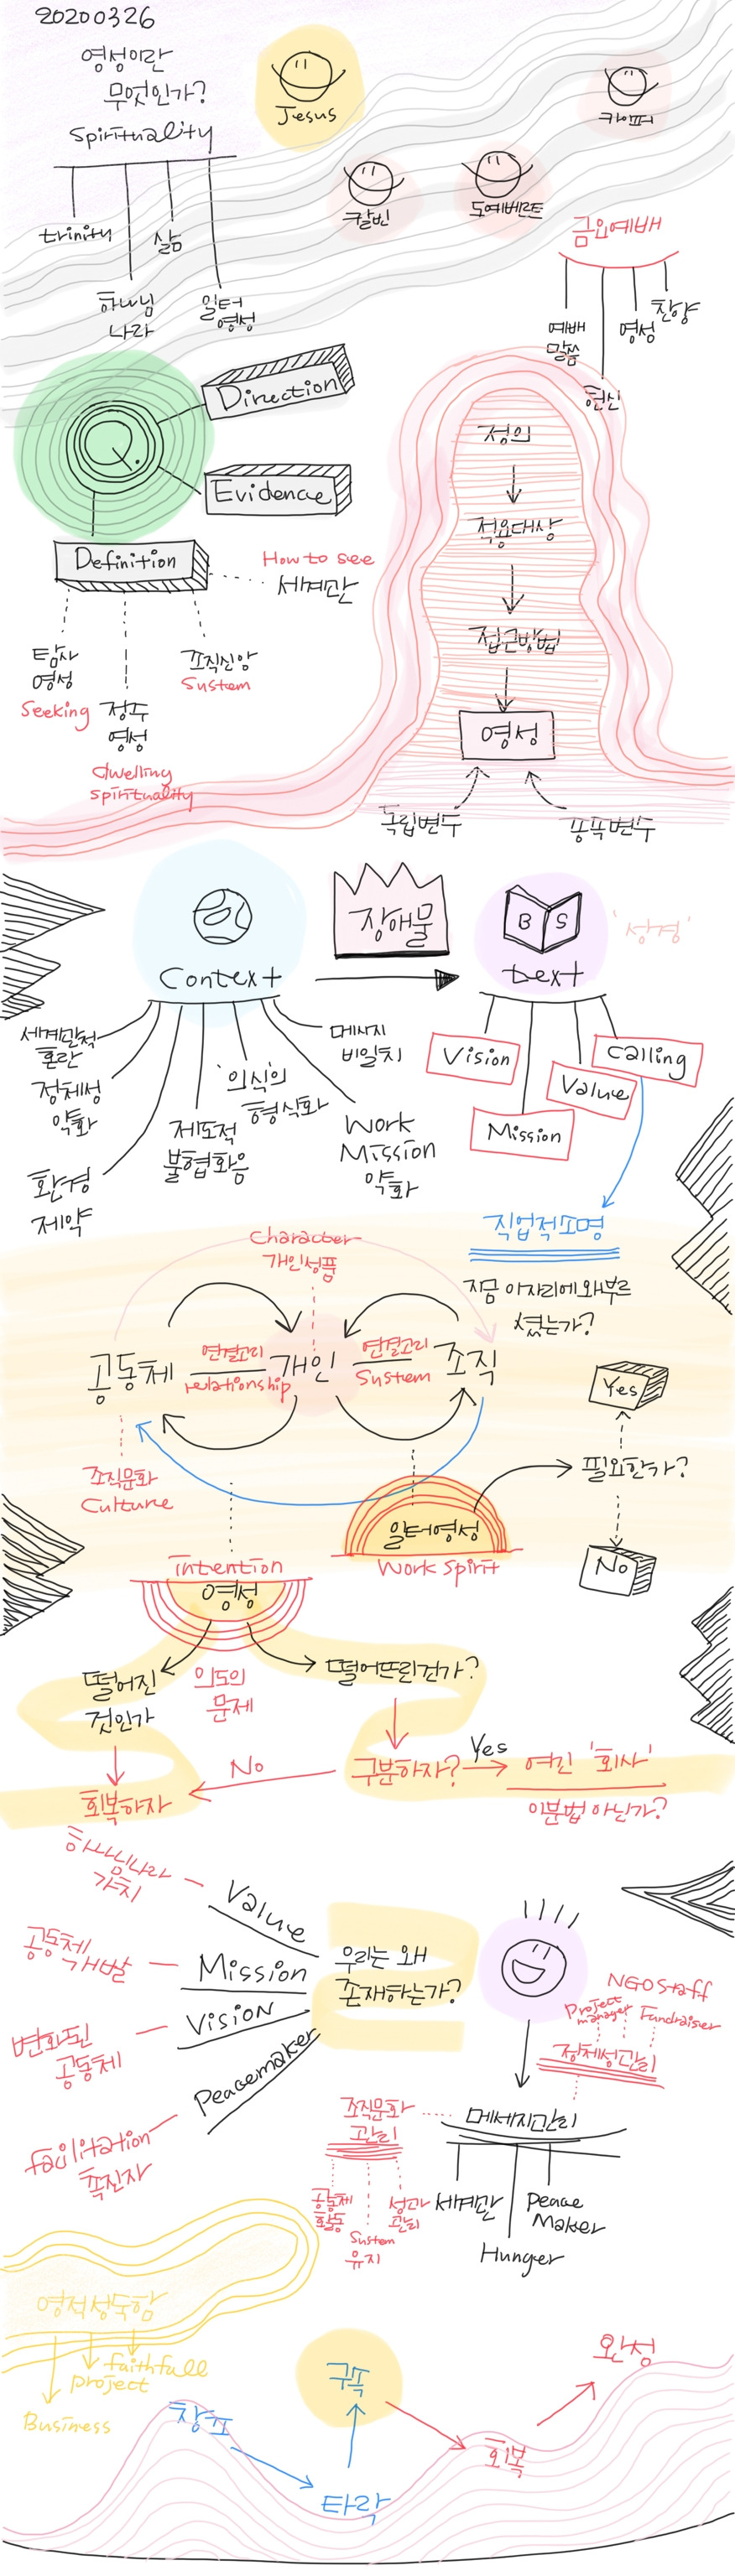 20200326
영성이란
무엇인가?
Spirituality
trinity
삶
하나님
나라
일터
영성
Jesus
칼빈
도예베르트
카이퍼
금요예배
예배
말씀
헌신
영성
찬양
Direction
Evidence
Definition
How to see
세계관
탐사
영성
Seeking
정주
영성
dwelling
spirituality
조직신앙
System
정의
적용대상
접근방법
영성
독립변수
종속변수
Context
장애물
B S
text
'성경'
세계관적
혼란
정체성
약화
환경
제약
제도적
불협화음
'의식'의
형식화
메시지
비일치
Work
Mission
약화
Vision
Mission
Value
Calling
직업적소명
지금 이자리에 왜부르
셨는가?
Character
개인성품
공동체
연결고리
relationship
개인
연결고리
System
조직
조직문화
Culture
일터영성
Work Spirit
필요한가?
Yes
No
intention
영성
떨어진
것인가
의도의
문제
떨어뜨린건가?
회복하자
No
구분하자?
Yes
여긴 '회사'
이분법 아닌가?
하나님나라
가치
Value
공동체
개발
Mission
변화된
공동체
Vision
facilitation
촉진자
Peacemaker
우리는 왜
존재하는가?
NGO Staff
Project
manager
Fundraiser
정체성관리
메세지관리
조직문화
관리
공동체
활동
System
유지
성과
관리
세계관
Hunger
Peace
Maker
영적성숙함
faithfull
project
Business
창조
타락
구속
회복
완성